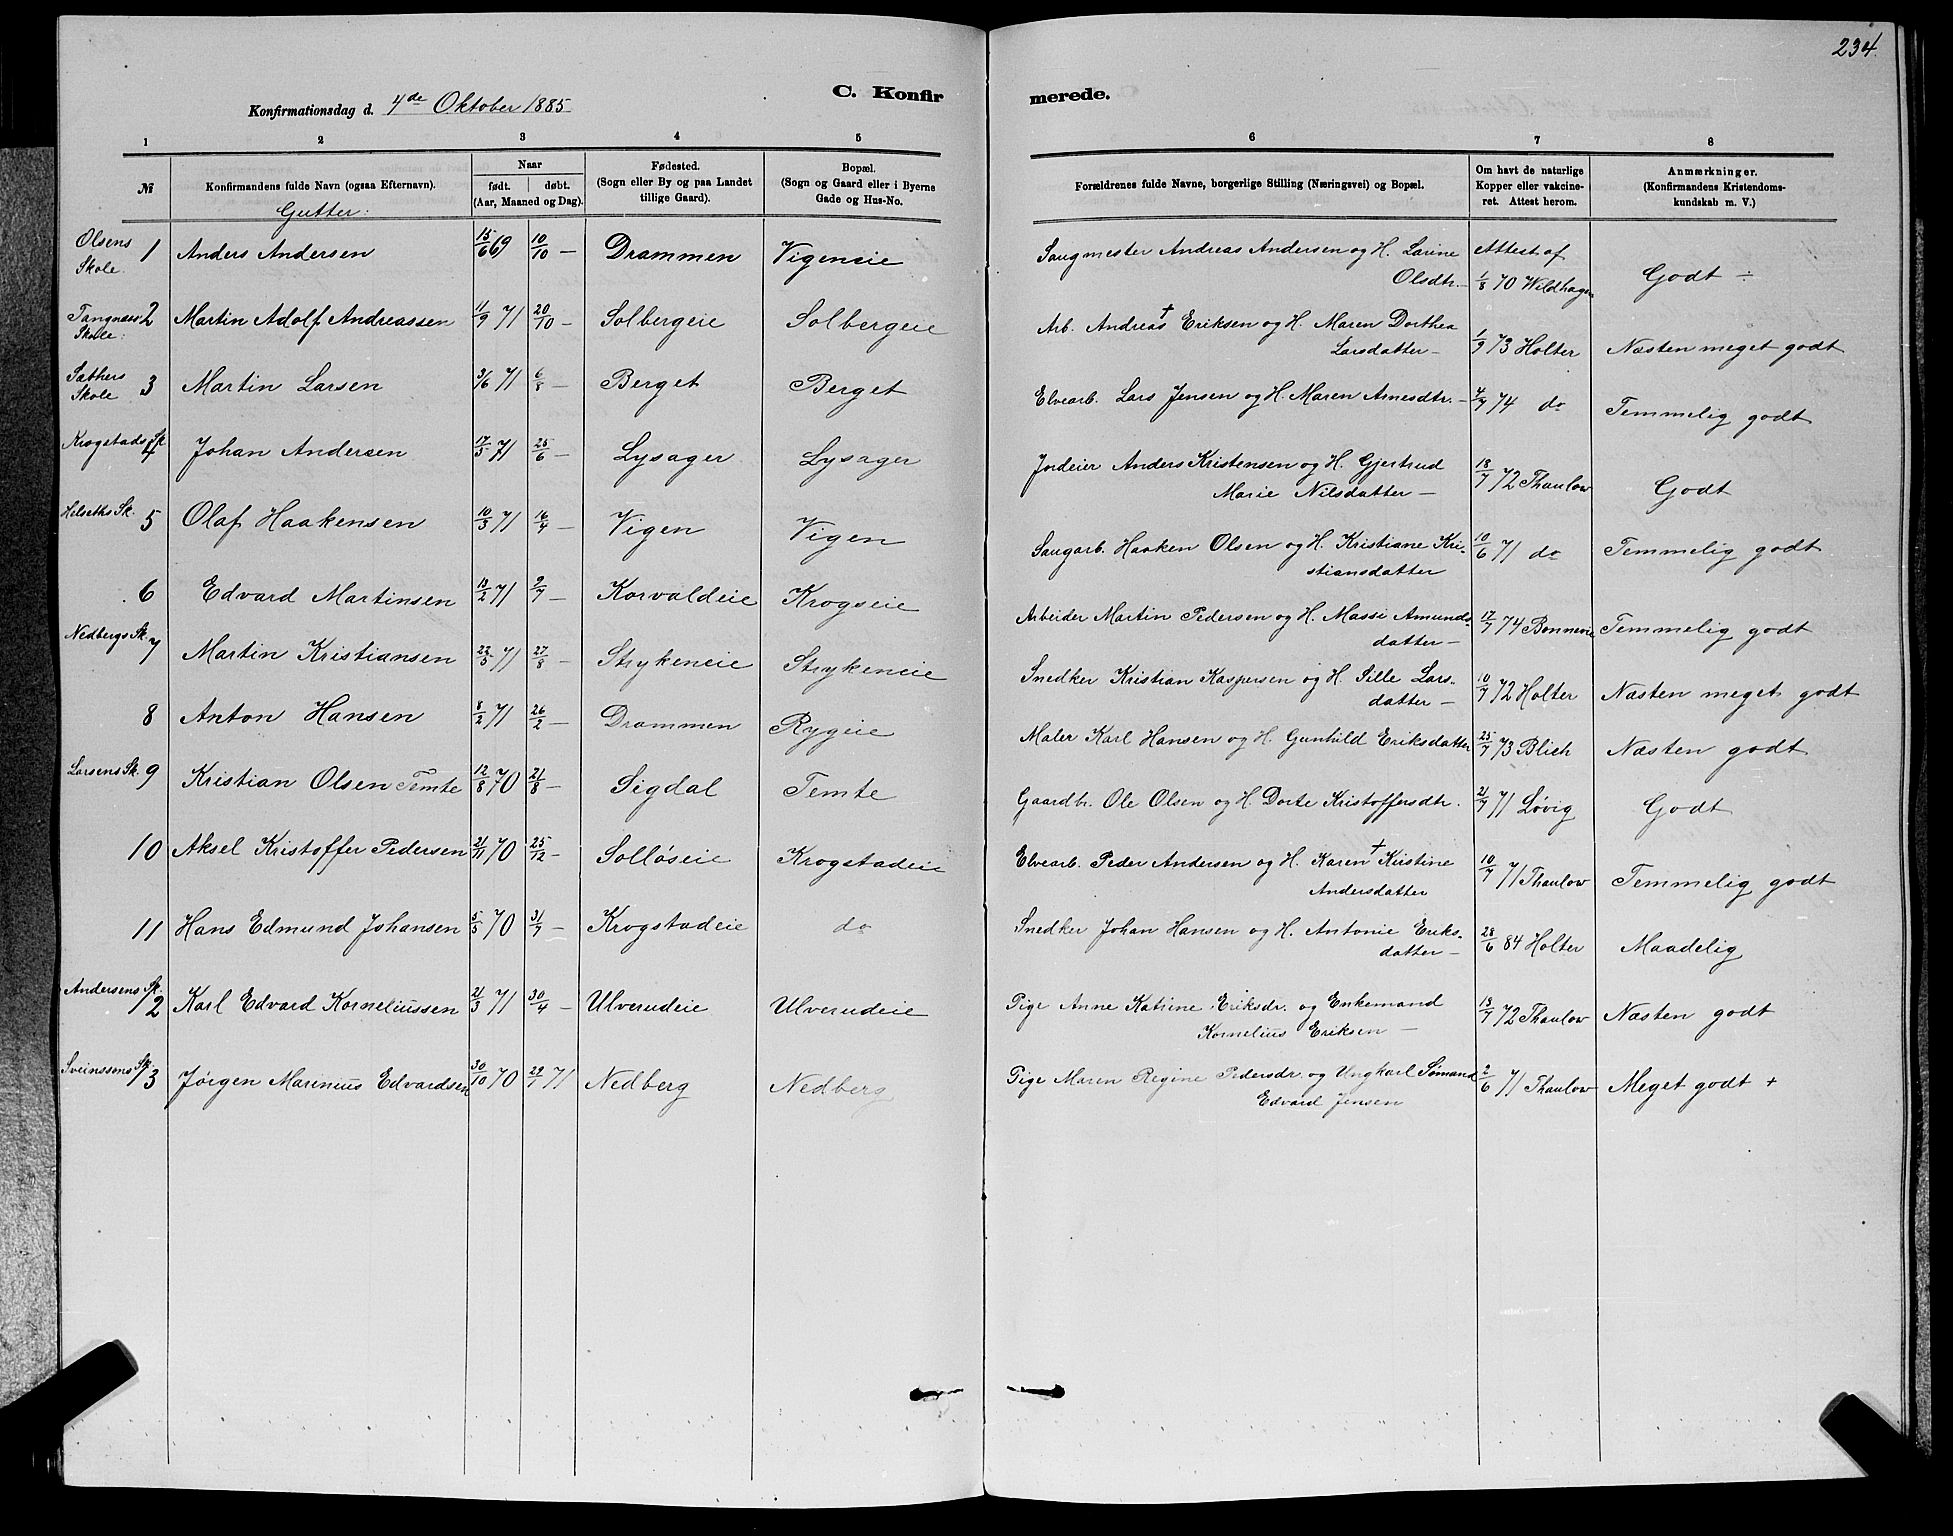 234.
Konfirmationsdag d. 4de Oktober 1885
C. Konfirmerede.
1 2 3 4 5 6 7 8
№ | Konfirmandens fulde Navn (ogsaa Efternavn). | Naar født. døbt. (Aar, Maaned og Dag). | Fødested. (Sogn eller By og paa Landet tillige Gaard). | Bopæl. (Sogn og Gaard eller i Byerne Gade og Hus-No. | Forældrenes fulde Navne, borgerlige Stilling (Næringsvei) og Bopæl. | Om havt de naturlige Kopper eller vakcineret. Attest herom. | Anmærkninger. (Konfirmandens Kristendomskundskab m. V.)
Gutter:
Olsens Skole. 1 | Anders Andersen | 15/6 69 | 10/10 — | Drammen | Vigeneie | Saugmester Andreas Andersen og H. Lavine Olsdtr. — | Attest af 1/8 70 Wildhagen | Godt ÷
Tangnæs Skole: 2 | Martin Adolf Andreassen | 11/9 71 | 20/10 — | Solbergeie | Solbergeie | Arb. Andreas † Eriksen og H. Maren Dorthea Larsdatter — | 1/9 73 Holter | Næsten meget godt
Sæthers Skole 3 | Martin Larsen | 3/6 71 | 6/8 — | Berget | Berget | Elvearb. Lars Jensen og H. Maren Arnesdtr. — | 4/7 74 do | Temmelig godt
Krogstads Sk. 4 | Johan Andersen | 17/5 71 | 25/6 — | Lysager | Lysager | Jordeier Anders Kristensen og H. Gjertrud Marie Nilsdatter — | 18/7 72 Thaulow | Godt
Helseths Sk. 5 | Olaf Haakensen | 10/3 71 | 16/4 — | Vigen | Vigen | Saugarb. Haaken Olsen og H. Kristiane Kristiansdatter | 10/6 71 do | Temmelig godt
6 | Edvard Martinsen | 13/2 71 | 9/7 — | Korvaldeie | Krogseie | Arbeider Martin Pedersen og H. Massi Amundsdatter — | 17/7 74 Bonnevie | Temmelig godt
Nedbergs Sk. 7 | Martin Kristiansen | 22/5 71 | 27/8 — | Strykeneie | Strykeneie | Snedker Kristian Kaspersen og H. Sille Larsdatter — | 10/7 72 Holter | Næsten meget godt
8 | Anton Hansen | 8/2 71 | 26/2 — | Drammen | Rygeie | Maler Karl Hansen og H. Gunhild Eriksdatter | 25/7 73 Blich | Næsten godt
Larsens Sk. 9 | Kristian Olsen Temte | 12/8 70 | 21/8 — | Sigdal | Temte | Gaardbr. Ole Olsen og H. Dorte Kristoffersdtr. | 21/7 71 Løvig | Godt
10 | Aksel Kristoffer Pedersen | 21/11 70 | 25/12 — | Solløseie | Krogstadeie | Elvearb. Peder Andersen og H. Karen † Kristine Andersdatter | 10/7 71 Thaulow | Temmelig godt
11 | Hans Edmund Johansen | 5/5 70 | 31/7 — | Krogstadeie | do | Snedker Johan Hansen og H. Antonie Eriksdatter — | 28/6 84 Holter | Maadelig
Andersens Sk. 12 | Karl Edvard Korneliussen | 21/3 71 | 30/4 — | Ulverudeie | Ulverudeie | Pige Anne Katrine Eriksdr. og Enkemand Kornelius Eriksen — | 18/7 72 Thaulow | Næsten godt
Sveinssens Sk. 13 | Jørgen Marinius Edvardsen | 30/10 70 | 29/1 71 | Nedberg | Nedberg | Pige Maren Regine Pedersdr. og Ungkarl Sømand Edvard Jensen | 2/6 71 Thaulow | Meget godt +